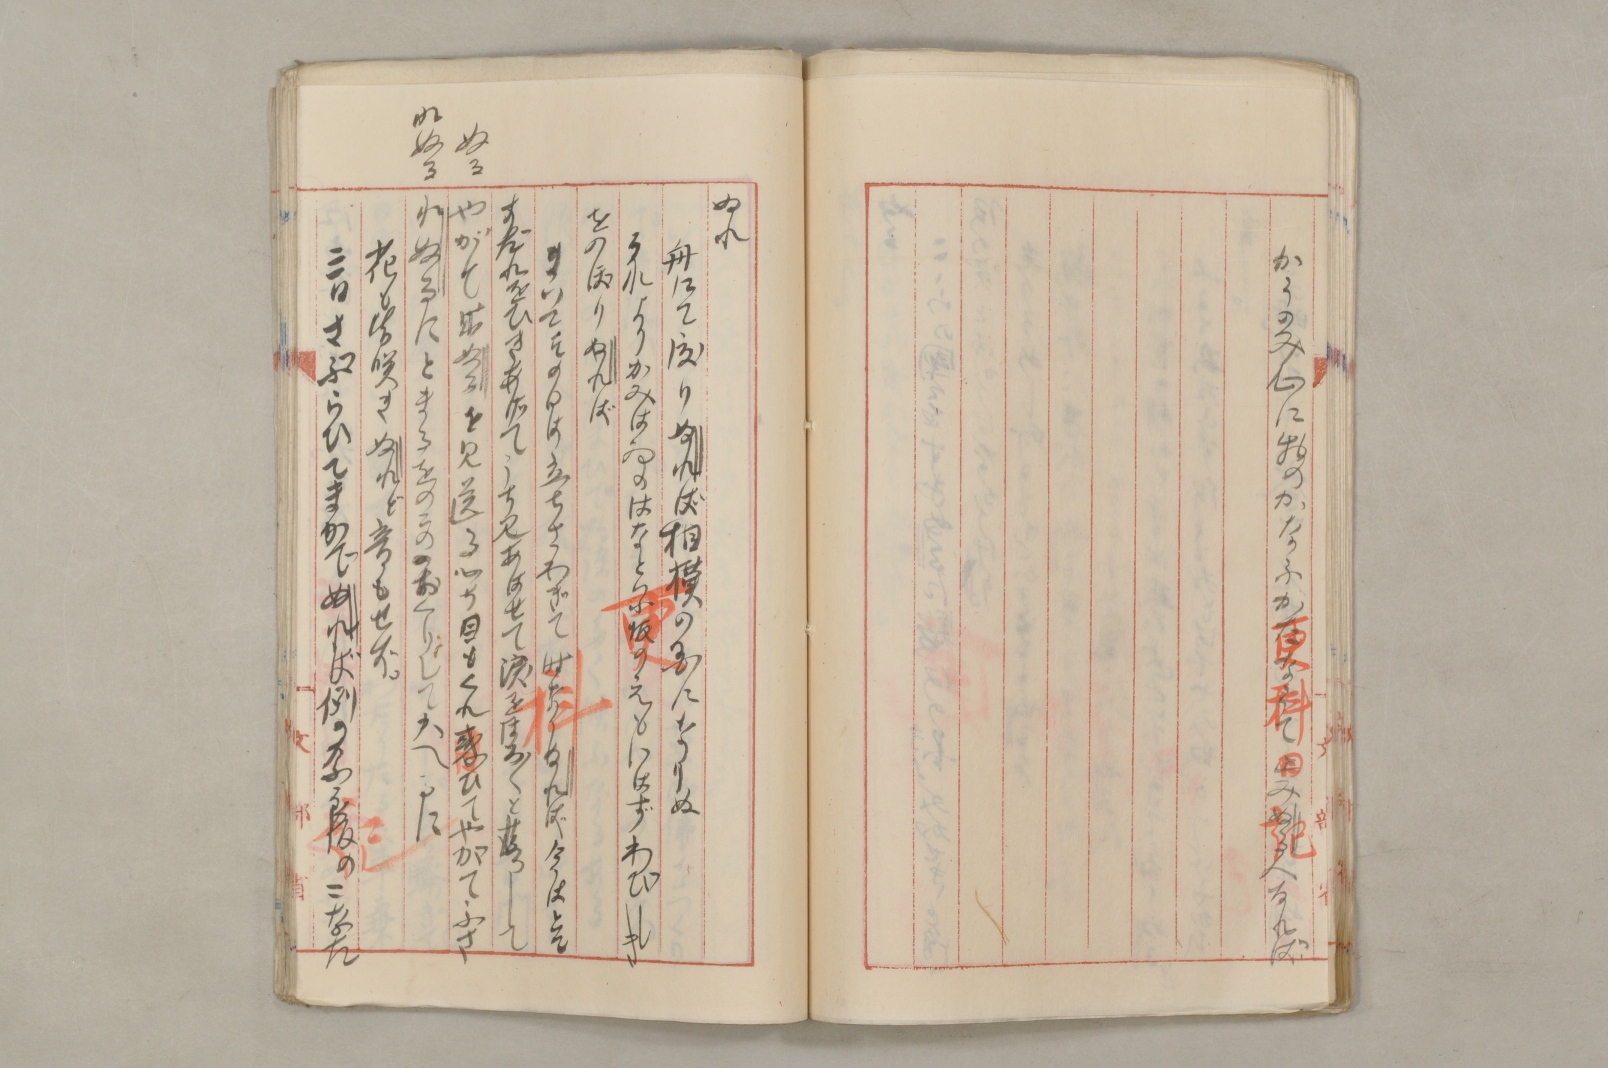 かうのみ心に物のかなふかたなうてやみぬる人なれば
更科日記
ぬれ
舟にて渡りぬれば相模の国になりぬ
それよりかみはゐのはなといふ坂のえもいはずわびしき
をのぼりぬれば
まいてその日は立ちさわぎて時なりぬれば今はとて
すだれをひきあげてうち見あはせて涙をほろ〱と落して
ぬる
やがて出ぬるを見送る心ち目もくれ惑ひてやがてふさ
れぬる
れぬるにとまるをのこのおくりしてかへるに
花も皆咲きぬれど音もせず。
三日さぶらひてまかでぬれば例の奈良坂のこなた
更科日記
文部省